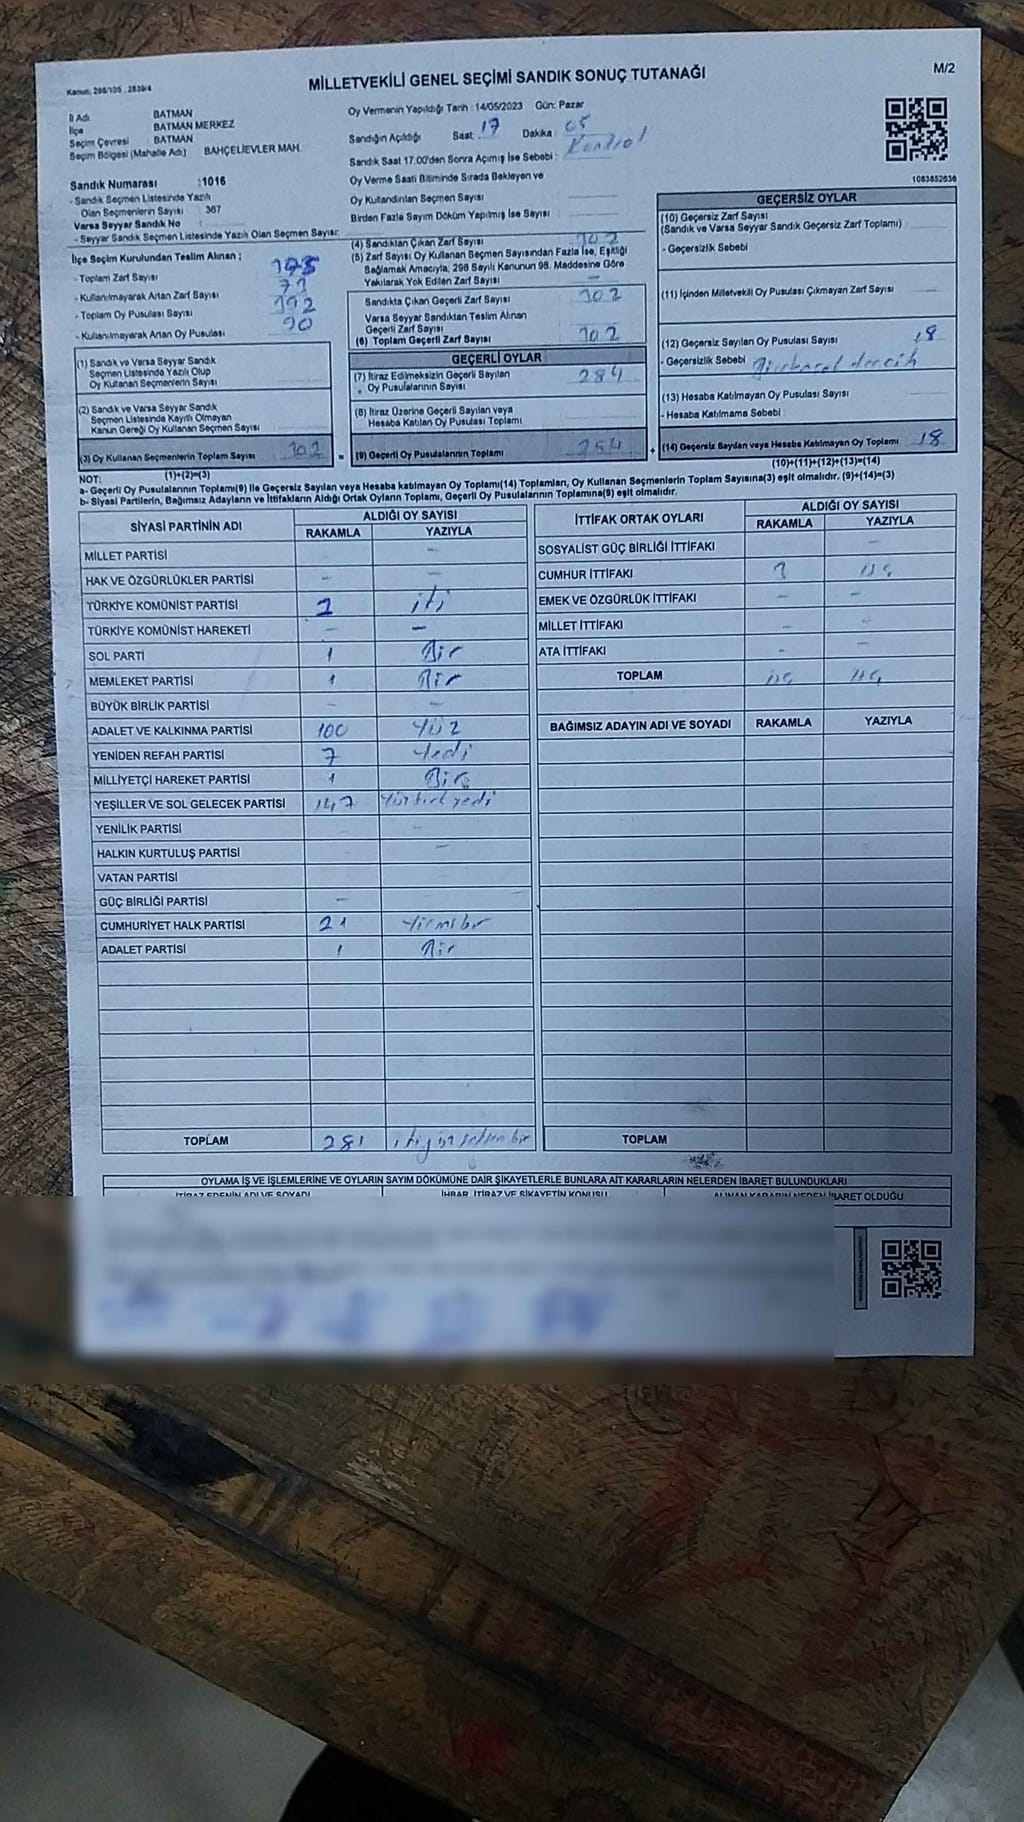 MİLLETVEKİLİ GENEL SEÇİMİ SANDIK SONUÇ TUTANAĞI
M/2
Kanun: 298/105 , 2839/4
İl Adı BATMAN
İlçe BATMAN MERKEZ
Seçim Çevresi BATMAN
Seçim Bölgesi (Mahalle Adı) BAHÇELİEVLER MAH.
Oy Vermenin Yapıldığı Tarih : 14/05/2023 Gün: Pazar
Sandığın Açıldığı Saat : 17 Dakika : 05
Sandık Saat 17.00'den Sonra Açımış İse Sebebi : Kontrol
Oy Verme Saati Bitiminde Sırada Bekleyen ve
Oy Kullandırılan Seçmen Sayısı
Birden Fazla Sayım Döküm Yapılmış İse Sayısı
1083852636
Sandık Numarası :1016
- Sandık Seçmen Listesinde Yazılı
Olan Seçmenlerin Sayısı : 367
Varsa Seyyar Sandık No :
- Seyyar Sandık Seçmen Listesinde Yazılı Olan Seçmen Sayısı:
İlçe Seçim Kurulundan Teslim Alınan ;
- Toplam Zarf Sayısı
- Kullanılmayarak Artan Zarf Sayısı
- Toplam Oy Pusulası Sayısı
- Kullanılmayarak Artan Oy Pusulası 90
(1) Sandık ve Varsa Seyyar Sandık
Seçmen Listesinde Yazılı Olup
Oy Kullanan Seçmenlerin Sayısı
(2) Sandık ve Varsa Seyyar Sandık
Seçmen Listesinde Kayıtlı Olmayan
Kanun Gereği Oy Kullanan Seçmen Sayısı
(3) Oy Kullanan Seçmenlerin Toplam Sayısı 302
(1)+(2)=(3)
(4) Sandıktan Çıkan Zarf Sayısı 302
(5) Zarf Sayısı Oy Kullanan Seçmen Sayısından Fazla İse, Eşitliği
Sağlamak Amacıyla; 298 Sayılı Kanunun 98. Maddesine Göre
Yakılarak Yok Edilen Zarf Sayısı –
Sandıkta Çıkan Geçerli Zarf Sayısı 302
Varsa Seyyar Sandıktan Teslim Alınan
Geçerli Zarf Sayısı
(6) Toplam Geçerli Zarf Sayısı 302
GEÇERLİ OYLAR
(7) İtiraz Edilmeksizin Geçerli Sayılan
Oy Pusulalarının Sayısı 284
(8) İtiraz Üzerine Geçerli Sayılan veya
Hesaba Katılan Oy Pusulası Toplamı
= (9) Geçerli Oy Pusulalarının Toplamı 284 +
GEÇERSİZ OYLAR
(10) Geçersiz Zarf Sayısı
(Sandık ve Varsa Seyyar Sandık Geçersiz Zarf Toplamı)
- Geçersizlik Sebebi
(11) İçinden Milletvekili Oy Pusulası Çıkmayan Zarf Sayısı
(12) Geçersiz Sayılan Oy Pusulası Sayısı 18
- Geçersizlik Sebebi
(13) Hesaba Katılmayan Oy Pusulası Sayısı
- Hesaba Katılmama Sebebi
(14) Geçersiz Sayılan veya Hesaba Katılmayan Oy Toplamı 18
(10)+(11)+(12)+(13)=(14)
NOT:
a- Geçerli Oy Pusulalarının Toplamı(9) ile Geçersiz Sayılan veya Hesaba katılmayan Oy Toplamı(14) Toplamları, Oy Kullanan Seçmenlerin Toplam Sayısına(3) eşit olmalıdır. (9)+(14)=(3)
b- Siyasi Partilerin, Bağımsız Adayların ve İttifakların Aldığı Ortak Oyların Toplamı, Geçerli Oy Pusulalarının Toplamına(9) eşit olmalıdır.
SİYASİ PARTİNİN ADI ALDIĞI OY SAYISI
RAKAMLA YAZIYLA
MİLLET PARTİSİ –
HAK VE ÖZGÜRLÜKLER PARTİSİ – –
TÜRKİYE KOMÜNİST PARTİSİ 2 iki
TÜRKİYE KOMÜNİST HAREKETİ – –
SOL PARTİ 1 Bir
MEMLEKET PARTİSİ 1 Bir
BÜYÜK BİRLİK PARTİSİ – –
ADALET VE KALKINMA PARTİSİ 100 Yüz
YENİDEN REFAH PARTİSİ 7 Yedi
MİLLİYETÇİ HAREKET PARTİSİ 1 Bir
YEŞİLLER VE SOL GELECEK PARTİSİ 147 Yüz kırk yedi
YENİLİK PARTİSİ
HALKIN KURTULUŞ PARTİSİ –
VATAN PARTİSİ
GÜÇ BİRLİĞİ PARTİSİ –
CUMHURİYET HALK PARTİSİ 21 Yirmibir
ADALET PARTİSİ 1 Bir
TOPLAM 281 ikiyüz seksen bir
İTTİFAK ORTAK OYLARI ALDIĞI OY SAYISI
RAKAMLA YAZIYLA
SOSYALİST GÜÇ BİRLİĞİ İTTİFAKI –
CUMHUR İTTİFAKI 3 üç
EMEK VE ÖZGÜRLÜK İTTİFAKI – –
MİLLET İTTİFAKI – –
ATA İTTİFAKI – –
TOPLAM üç üç
BAĞIMSIZ ADAYIN ADI VE SOYADI RAKAMLA YAZIYLA
TOPLAM
OYLAMA İŞ VE İŞLEMLERİNE VE OYLARIN SAYIM DÖKÜMÜNE DAİR ŞİKAYETLERLE BUNLARA AİT KARARLARIN NELERDEN İBARET BULUNDUKLARI
İTİRAZ EDENİN ADI VE SOYADI İHBAR, İTİRAZ VE ŞİKAYETİN KONUSU ALINAN KARARIN NEDEN İBARET OLDUĞU